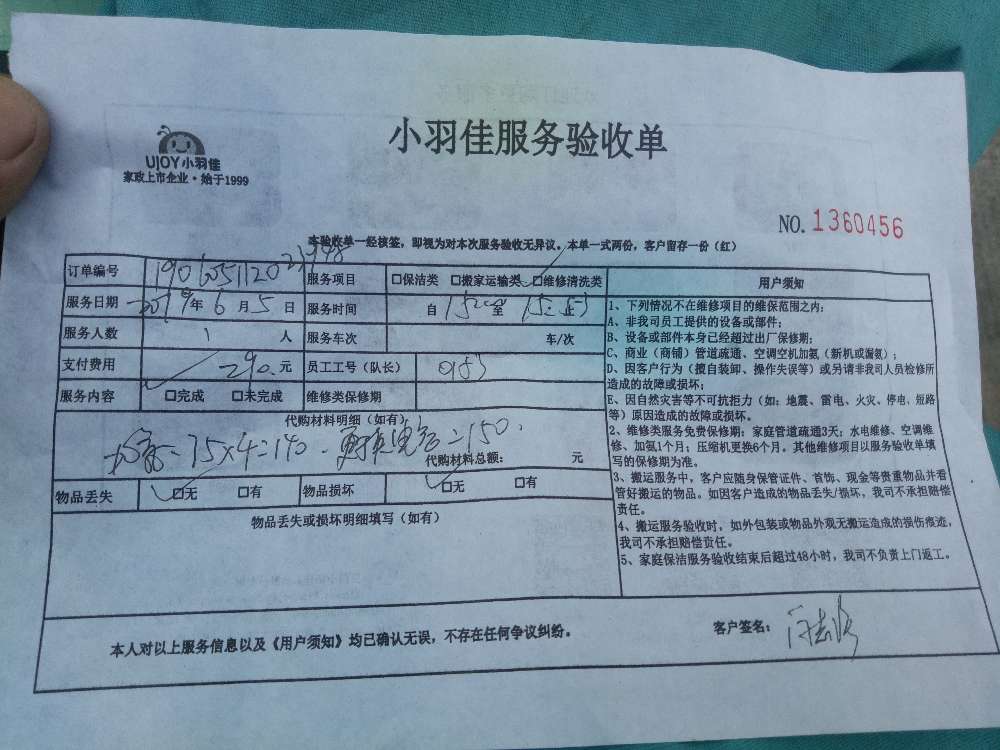 UJOY小羽佳
家政上市企业·始于1999
小羽佳服务验收单
NO. 1360456
本验收单一经核签，即视为对本次服务验收无异议。本单一式两份，客户留存一份（红）
订单编号 服务项目 □保洁类 □搬家运输类 □维修清洗类
服务日期 2019年 6 月 5 日 服务时间 自 至 止
服务人数 1 人 服务车次 车/次
支付费用 290. 元 员工工号（队长） 0153
服务内容 □完成 □未完成 维修类保修期
代购材料明细（如有）
75×4=140. =150.
代购材料总额： 元
物品丢失 □无 □有 物品损坏 □无 □有
物品丢失或损坏明细填写（如有）
用户须知
1、下列情况不在维修项目的维保范围之内：
A、非我司员工提供的设备或部件；
B、设备或部件本身已经超过出厂保修期；
C、商业（商铺）管道疏通、空调空机加氨（新机或漏氨）；
D、因客户行为（擅自装卸、操作失误等）或另请非我司人员检修所
造成的故障或损坏；
E、因自然灾害等不可抗拒力（如：地震、雷电、火灾、停电、短路
等）原因造成的故障或损坏。
2、维修类服务免费保修期：家庭管道疏通3天；水电维修、空调维
修、加氨1个月；压缩机更换6个月。其他维修项目以服务验收单填
写的保修期为准。
3、搬运服务中，客户应随身保管证件、首饰、现金等贵重物品并看
管好搬运的物品。如因客户造成的物品丢失/损坏，我司不承担赔偿
责任。
4、搬运服务验收时，如外包装或物品外观无搬运造成的损伤痕迹，
我司不承担赔偿责任。
5、家庭保洁服务验收结束后超过48小时，我司不负责上门返工。
本人对以上服务信息以及《用户须知》均已确认无误，不存在任何争议纠纷。
客户签名：